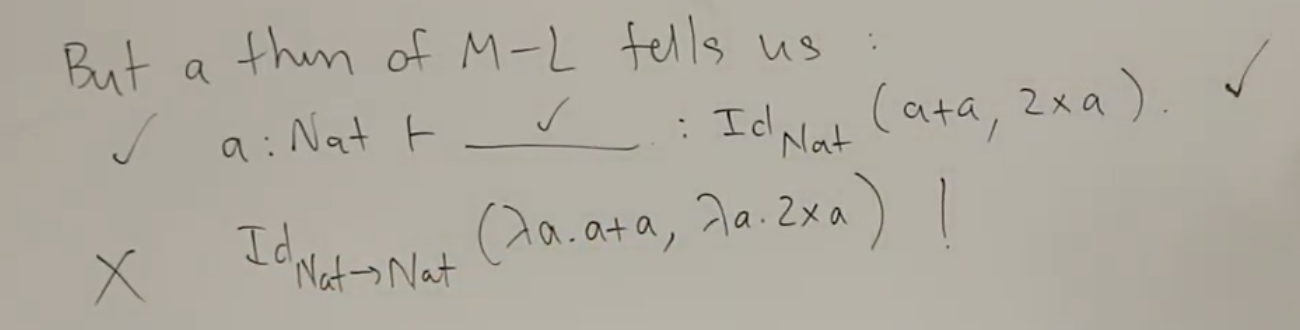 But a thm of M-L tells us :
✓ a : Nat ⊢ ___✓___ : Id_Nat (a+a, 2×a). ✓
X Id_Nat→Nat (λa.a+a, λa.2×a) !